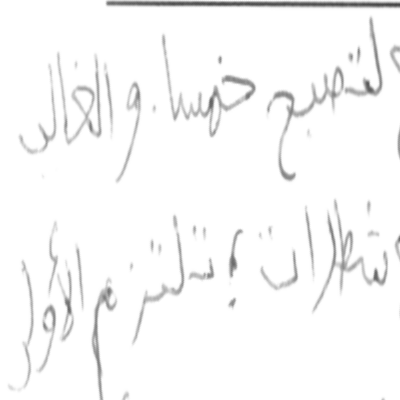 لتصبح خمسا. والغالب
شطرات ؛ تلتزم الأور